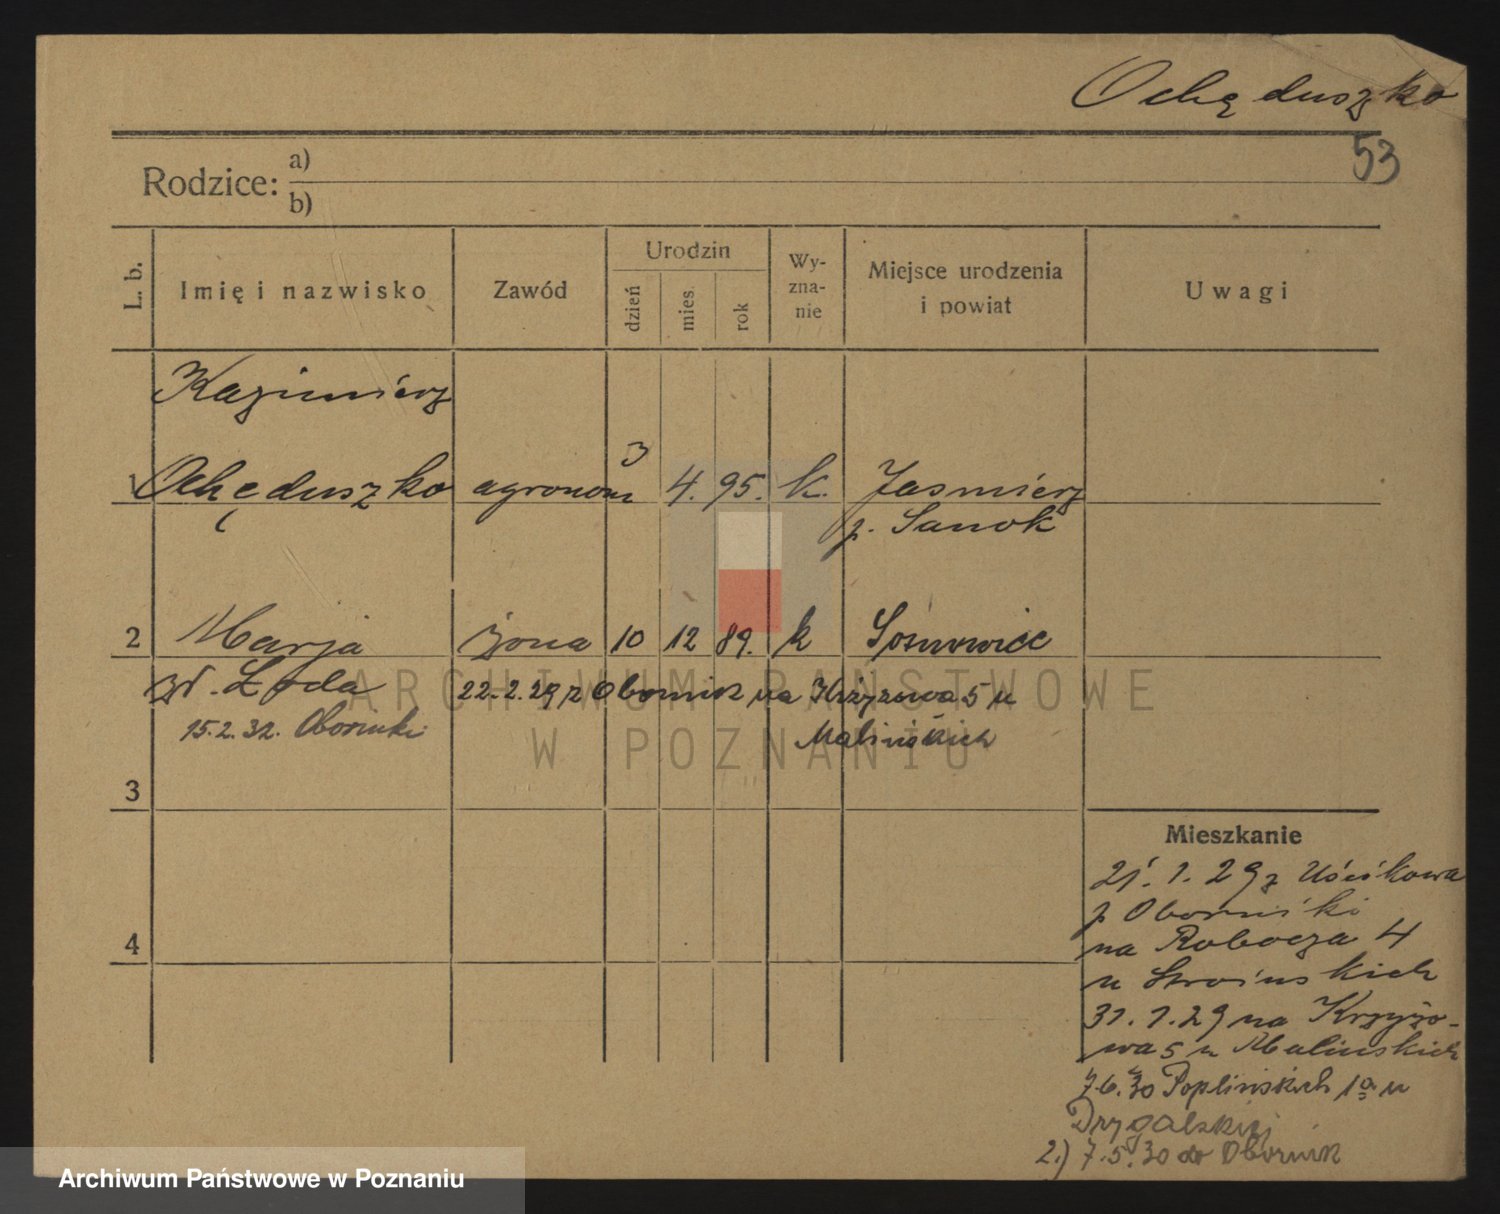 Ochęduszko
53
Rodzice: a)
b)
L. b.
Imię i nazwisko
Zawód
Urodzin
dzień
mies.
rok
Wy-
zna-
nie
Miejsce urodzenia
i powiat
Uwagi
Kazimierz
1 Ochęduszko agronom 3 4. 95. k. Jasmierz
p. Sanok
2 Marja żona 10 12 89. k Sosnowice
22.2.29 z Obornik na Krzyżowa 5 u
15.2.32. Oborniki Malińskich
3
4
Mieszkanie
21.1.29 z Uścikowa
p Oborniki
na Robocza 4
u
31.1.29 na Krzyżo-
wa 5 u Malinskich
7.6.30 Poplińskich 1a u
Drygalskiej
2.) 7.5.30 do Obornik
ARCHIWUM PAŃSTWOWE
W POZNANIU
Archiwum Państwowe w Poznaniu